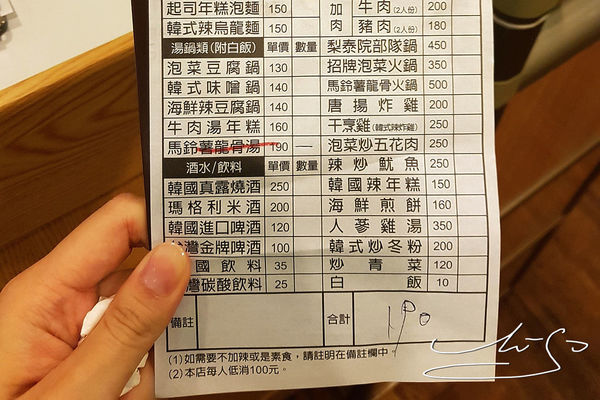 起司年糕泡麵 150
韓式辣烏龍麵 150
湯鍋類(附白飯) 單價 數量
泡菜豆腐鍋 130
韓式味噌鍋 140
海鮮辣豆腐鍋 140
牛肉湯年糕 160
馬鈴薯龍骨湯 190 —
酒水/飲料 單價 數量
韓國真露燒酒 250
瑪格利米酒 200
韓國進口啤酒 120
台灣金牌啤酒 100
國飲料 35
灣碳酸飲料 25
加 牛肉(2人份) 200
肉 豬肉(2人份) 180
梨泰院部隊鍋 450
招牌泡菜火鍋 350
馬鈴薯龍骨火鍋 500
唐揚炸雞 200
干烹雞(韓式辣炸雞) 250
泡菜炒五花肉 250
辣炒魷魚 250
韓國辣年糕 150
海鮮煎餅 160
人蔘雞湯 350
韓式炒冬粉 200
炒青菜 120
白飯 10
備註 合計 190
(1)如需要不加辣或是素食，請註明在備註欄中。
(2)本店每人低消100元。